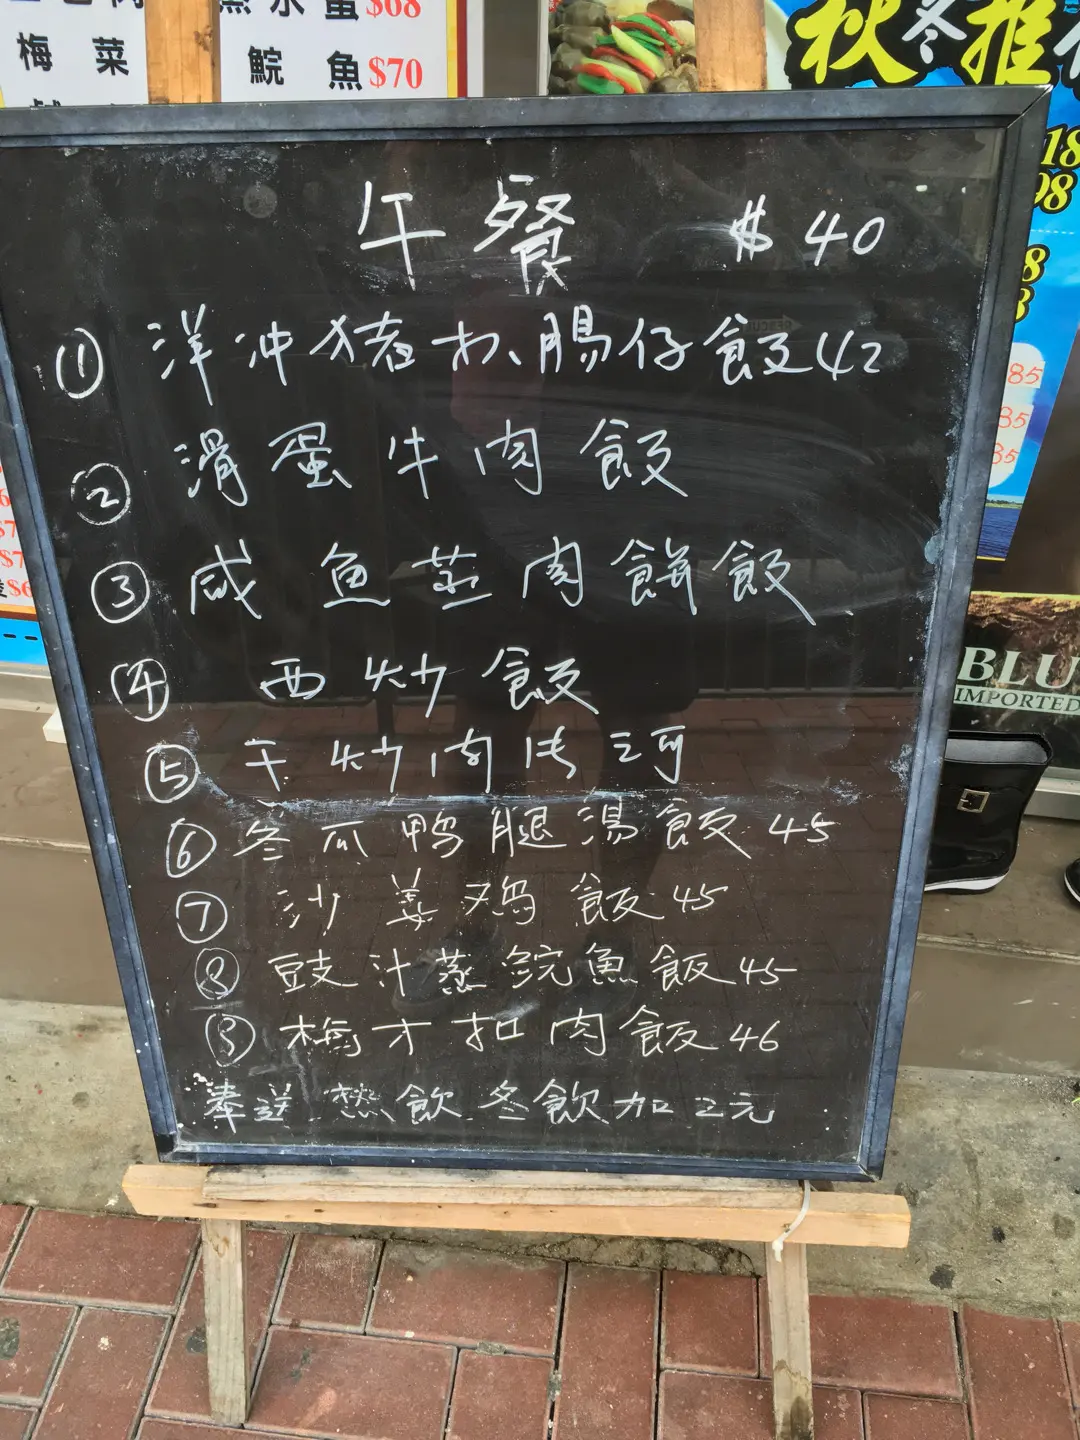 水蜜$68
梅菜
鯇魚$70
秋冬推
18
98
8
85
85
85
午餐 $40
① 洋冲猪扒、腸仔飯42
② 滑蛋牛肉飯
③ 咸鱼蒸肉餅飯
④ 西炒飯
⑤ 干炒肉片河
⑥ 冬瓜鸭腿湯飯45
⑦ 沙姜鸡飯45
⑧ 豉汁蒸鲩魚飯45
⑨ 梅才扣肉飯46
奉送热飲冬飲加2元
BLU
IMPORTED